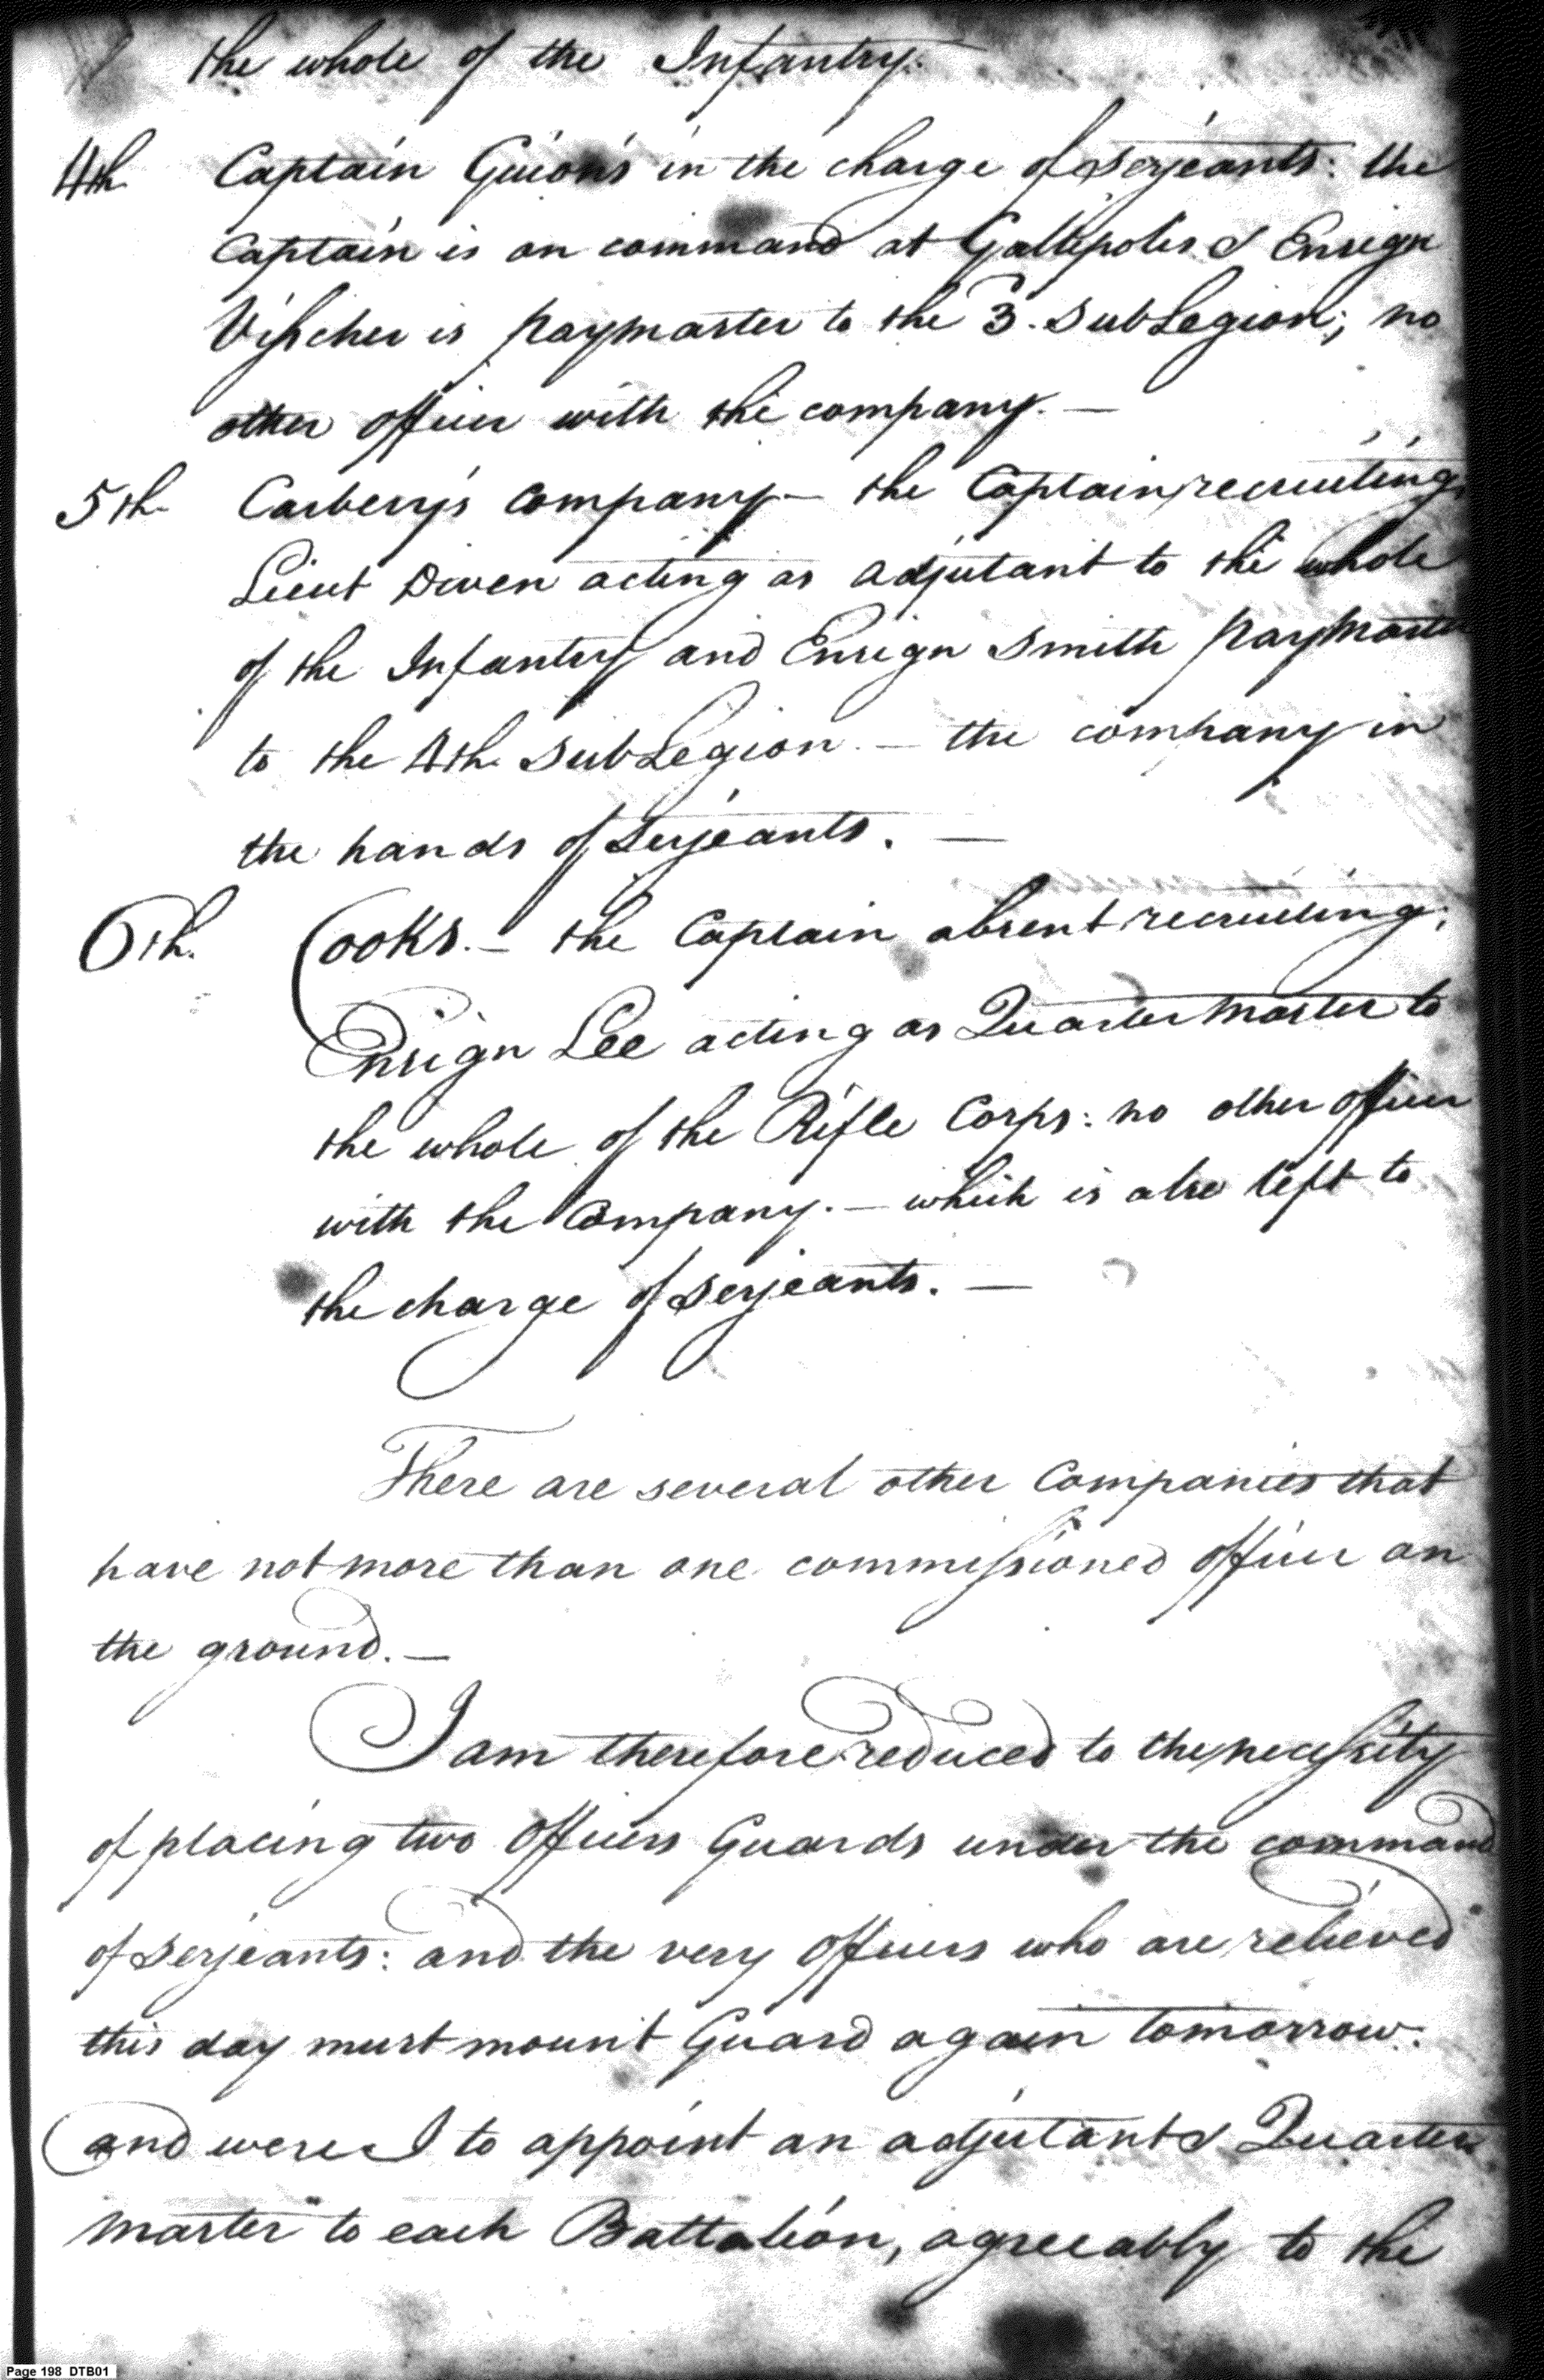 the whole of the Infantry.
4th Captain Guion's in the charge of Serjeants: the
Captain is on command at Gallipolis & Ensign
Visscher is paymaster to the 3. SubLegion; no
other officer with the company. —
5th Carberry's company — the Captain recruiting
Lieut Diven acting as adjutant to the whole
of the Infantry and Ensign Smith paymaster
to the 4th. SubLegion. — the company in
the hands of Serjeants. —
6th. Cooks. — the Captain absent recruiting;
Ensign Lee acting as Quarter Master to
the whole of the Rifle Corps: no other officer
with the Company. — which is also left to
the charge of Serjeants. —
There are several other Companies that
have not more than one commissioned officer on
the ground. —
I am therefore reduced to the necessity
of placing two Officers Guards under the command
of Serjeants: and the very Officers who are relieved
this day must mount Guard again tomorrow.
and were I to appoint an adjutant & Quarter
Master to each Battalion, agreeably to the
Page 198 DTB01